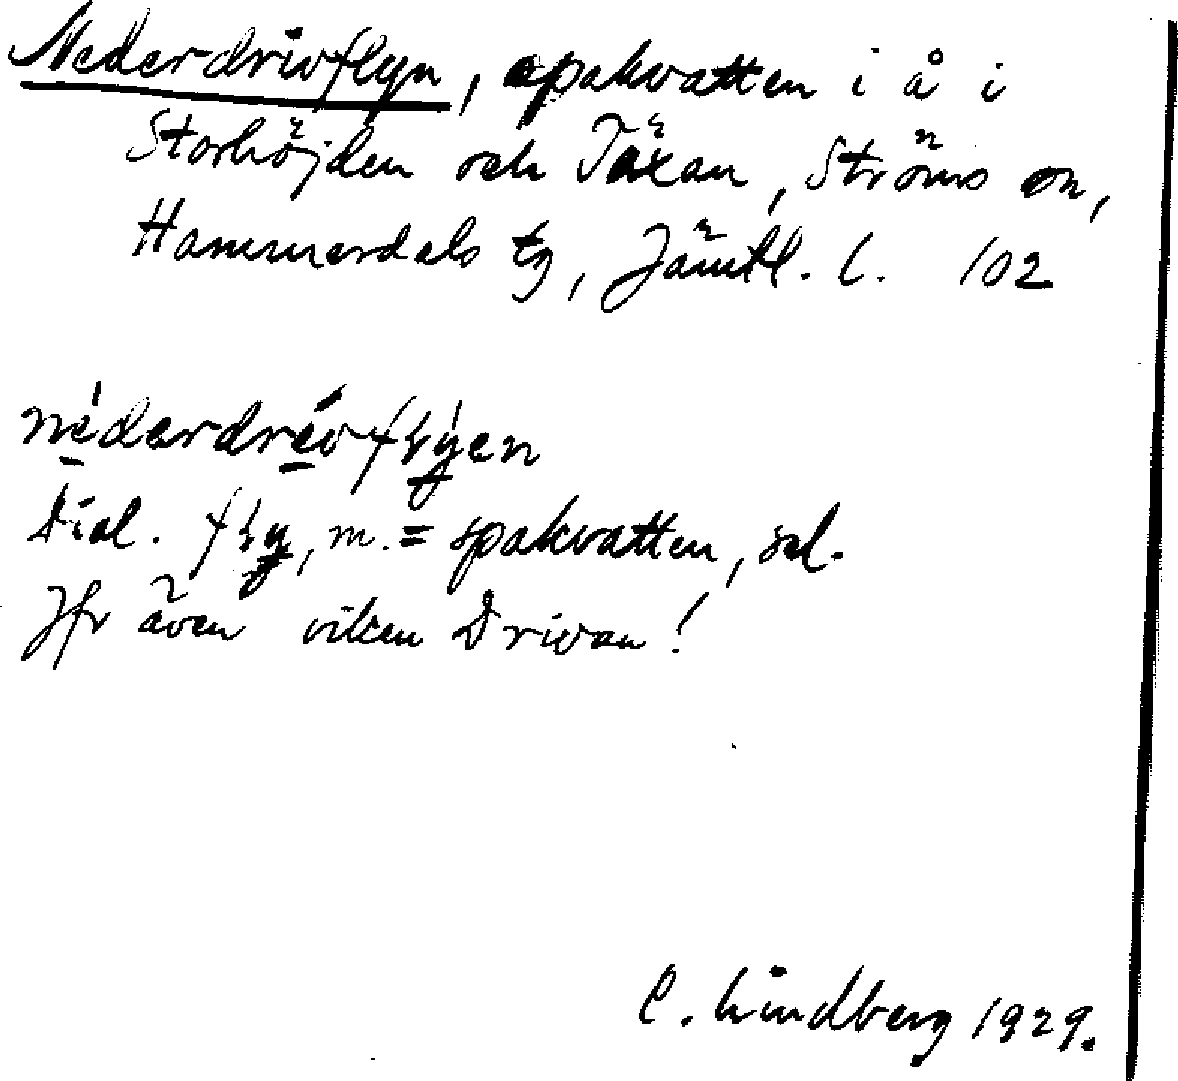 Nederdrivflyn, spakvatten i å i
Storhöjden och Täxan, Ströms sn,
Hammerdals tg, Jämtl. l. 102
Dial. m. = spakvatten, sel.
Jfr även viken Drivan!
C. Lindberg 1929.